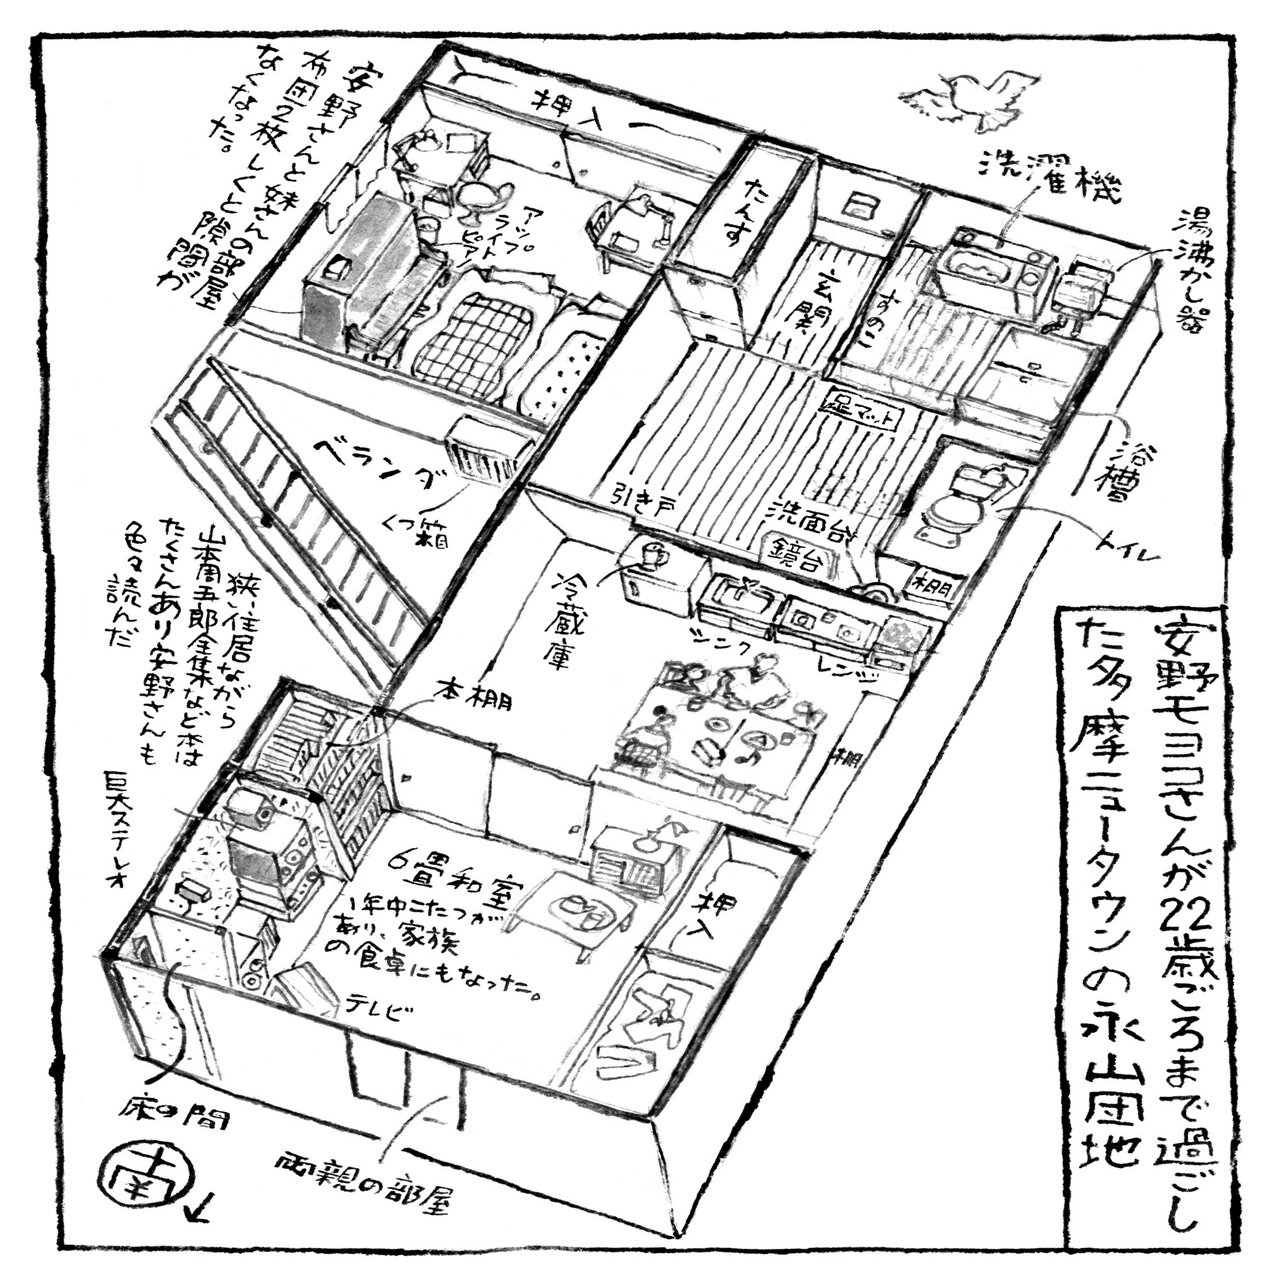 安野モヨコさんが22歳ごろまで過ごし
た多摩ニュータウンの永山団地
安野さんと妹さんの部屋
布団2枚しくと隙間が
なくなった。
押入
たんす
玄関
洗濯機
湯沸かし器
すのこ
アップ
ライプ
ピアト
足マット
浴槽
トイレ
ベランダ
くつ箱
引き戸
洗面台
鏡台
棚
冷蔵庫
シンク
レンジ
棚
狭い住居ながら
山本周五郎全集など本は
たくさんあり安野さんも
色々読んだ
本棚
巨大ステレオ
6畳和室
1年中こたつが
あり、家族
の食卓にもなった。
テレビ
押入
床の間
両親の部屋
南